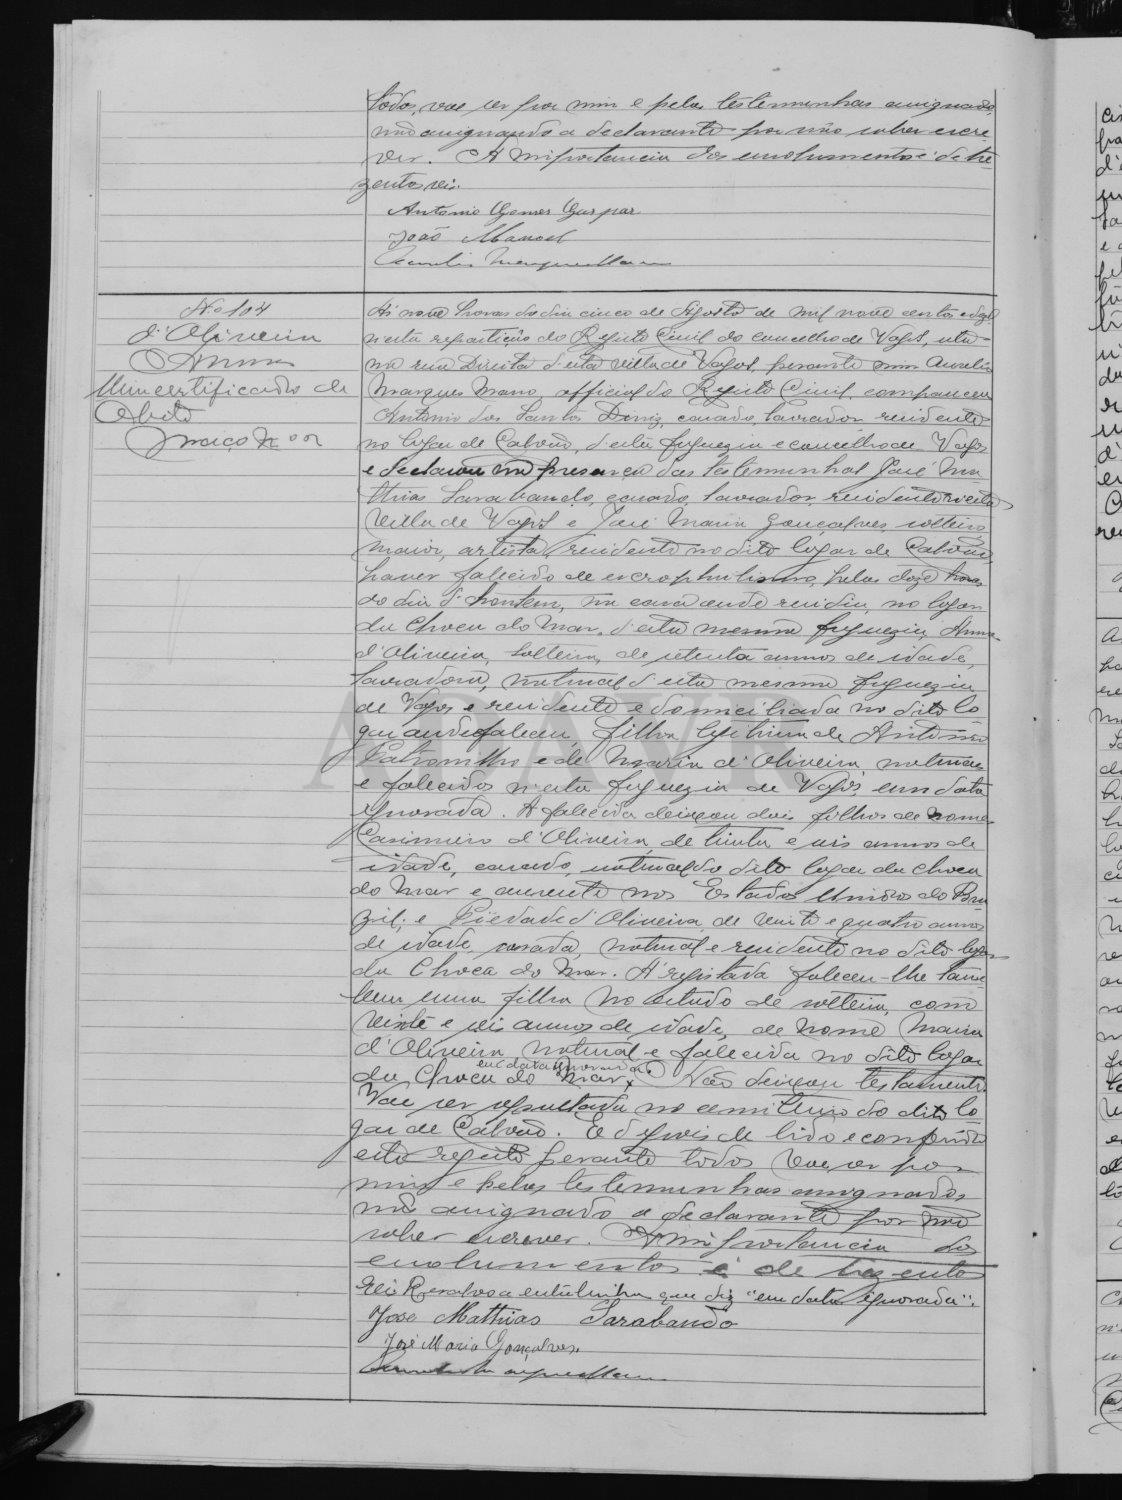 todos, vae ser por mim e pelas testemunhas assignado,
não assignando a declarante por não saber escre-
ver. A importancia dos emolumentos é de tre-
zentos reis.
Antonio Gomes Gaspar
João Manoel
Nº 104
d'Oliveira
Anna
Um certificado de
Obito
Maço Nº
Ás nove horas do dia cinco de Agosto de mil nove centos e
n'esta repartição do Registo Civil do concelho de Vagos, sita
na rua Direita d'esta villa de Vagos, perante mim Aurelio
Marques Mano official do Registo Civil, compareceu
Antonio dos Santos Diniz, casado, lavrador, residente
no logar de Calvão, d'esta freguezia e concelho de Vagos
e declarou na presença das testemunhas José Ma-
thias Sarabando, casado, lavrador, residente n'esta
villa de Vagos e José Maria Gonçalves, solteiro,
maior, artista, residente no dito logar de Calvão,
haver fallecido de escrophulismo, pelas doze horas
do dia d'hontem, na casa onde residia, no logar
da Choca do Mar, d'esta mesma freguezia, Anna
d'Oliveira, solteira, de setenta annos de idade,
lavradora, natural d'esta mesma freguezia
de Vagos e residente e domiciliada no dito lo-
gar onde faleceu, filha legitima de Antonio
e de Maria d'Oliveira, naturaes
e falecidos n'esta freguezia de Vagos, em data
ignorada. A falecida deixou dois filhos de nome
Casimiro d'Oliveira, de trinta e seis annos de
idade, casado, natural do dito logar da Choca
do Mar e ausente nos Estados Unidos do Bra-
zil; e Piedade d'Oliveira, de vinte e quatro annos
de idade, casada, natural e residente no dito logar
da Choca do Mar. Á registada faleceu-lhe tam-
bem uma filha no estado de solteira, com
vinte e seis annos de idade, de nome Maria
d'Oliveira, natural e falecida no dito logar
em data ignorada
da Choca do Mar. Não deixou testamento.
Vae ser sepultada no cemiterio do dito lo-
gar de Calvão. E depois de lido e conferido
este registo perante todos, vae ser por
mim e pelas testemunhas assignado,
não assignando o declarante por não
saber escrever. A importancia dos
emolumentos é de trezentos
reis. Resalvo a entrelinha que diz "em data ignorada".
José Mathias Sarabando
José Maria Gonçalves
ADAVR